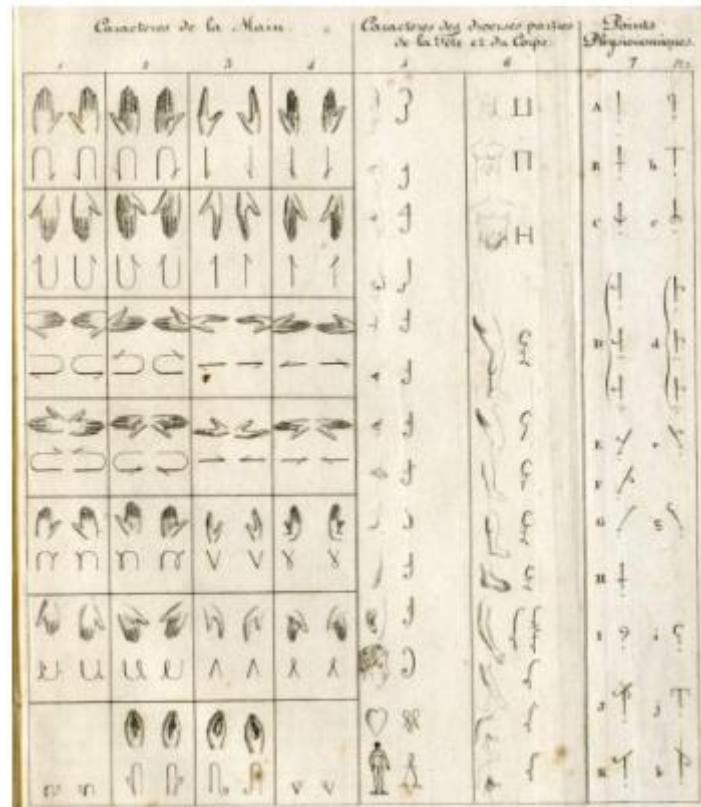 Caracteres de la Main.
Caracteres des diverses parties
de la Tête et du Corps.
Points
Physionomiques.
1 2 3 4 5 6 7
A
B b
C c
D d
E e
F
G g
H
I i
J j
K k